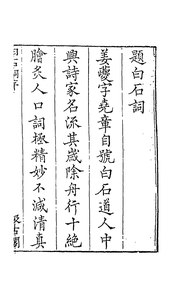 題白石詞
姜夔字堯章自號白石道人中
興詩家名流其歲除舟行十絶
膾炙人口詞極精妙不減清真
白石詞序
汲古閣